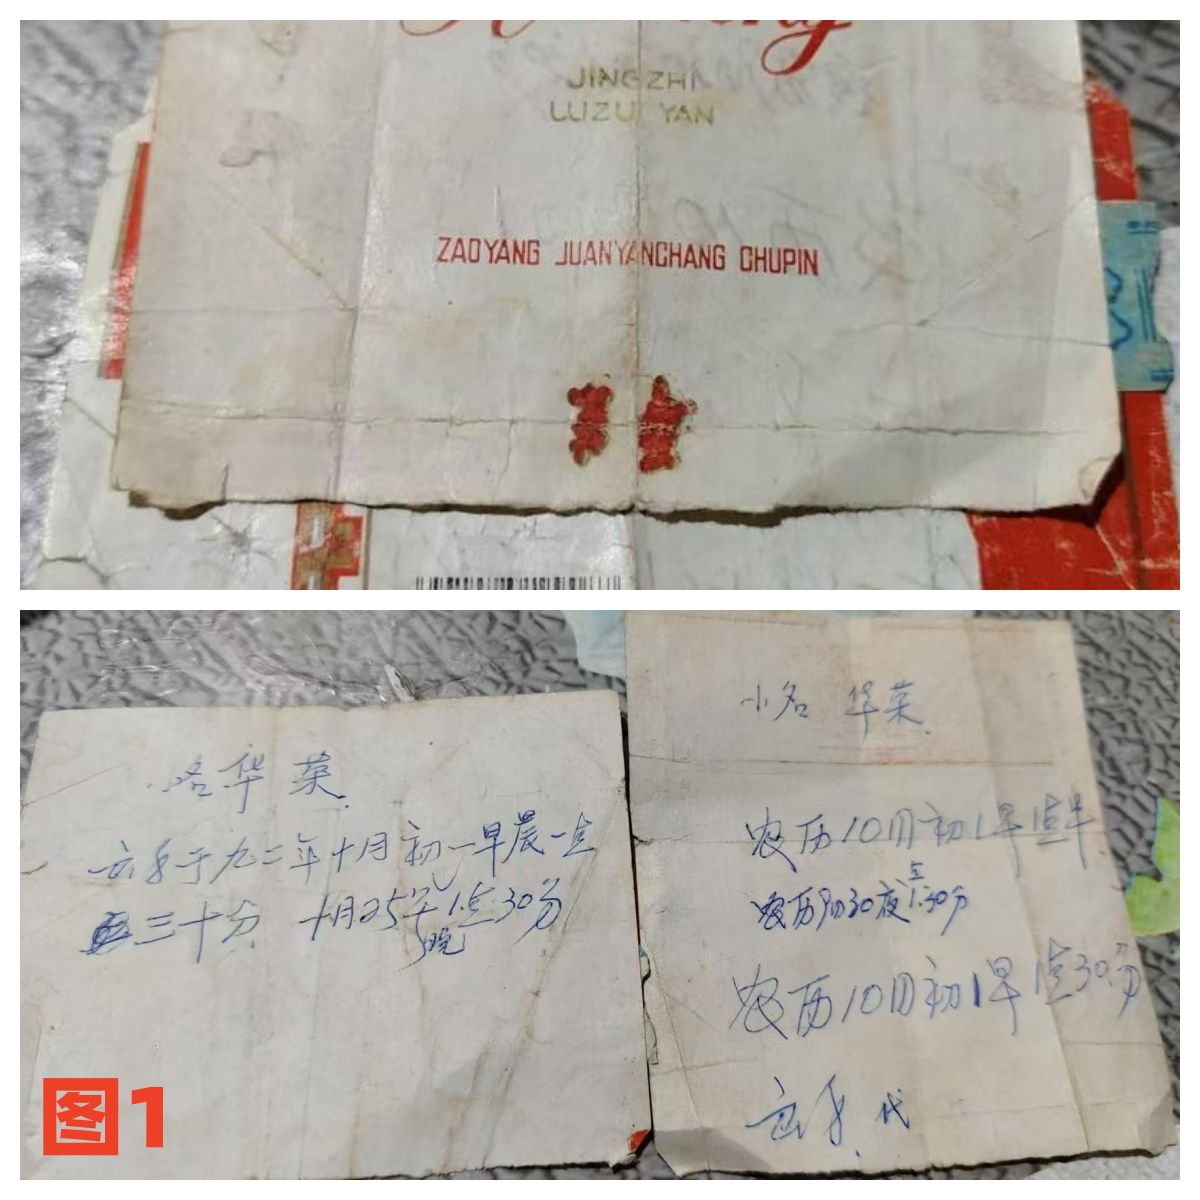 JINGZHI
LUZUI YAN
ZAOYANG JUANYANCHANG CHUPIN
小名 华荣
洛华荣
农历10月初1早1点半
于九二年十月初一早晨一点
三十分 十月25 晚1点30分
30夜1:30分
农历10月初1早1点30分
图1